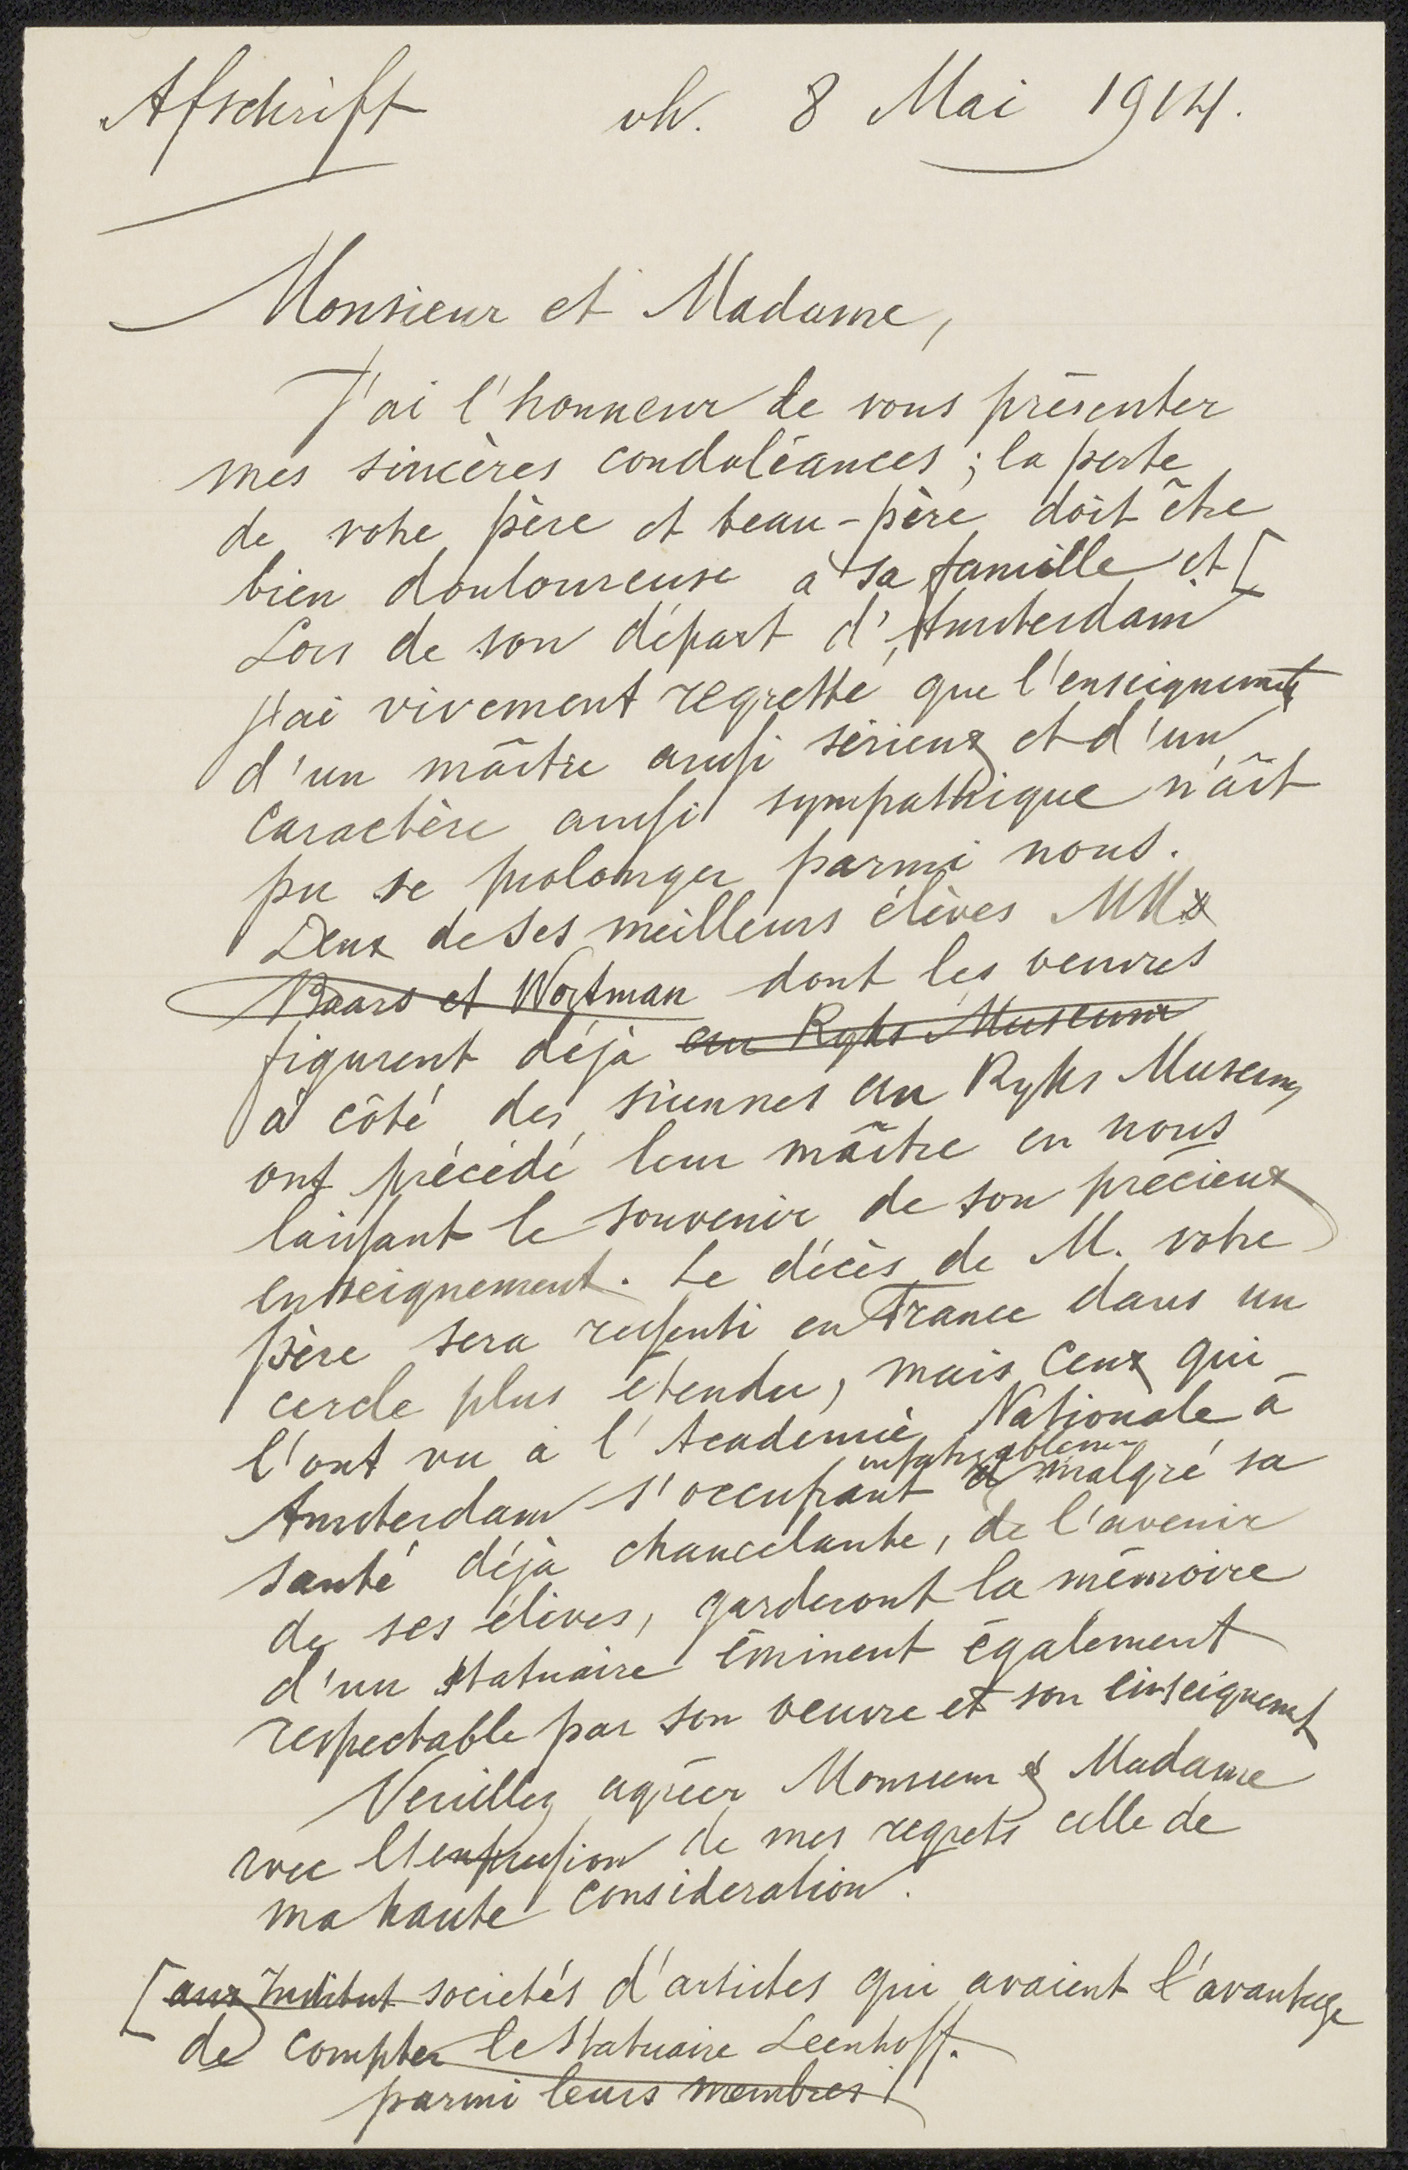 Afschrift vh. 8 Mai 1914.
Monsieur et Madame,
J'ai l'honneur de vous présenter
mes sincères condoléances ; la perte
de votre père et beau-père doit être
bien douloureuse à sa famille et [
Lors de son départ d'Amsterdam
j'ai vivement regretté que l'enseignement
d'un maître aussi sérieux et d'un
caractère aussi sympathique n'ait
pu se prolonger parmi nous.
Deux de ses meilleurs élèves MM
Baars et Wortman dont les oeuvres
figurent déjà au Ryks Museum
à côté des siennes au Ryks Museum
ont précédé leur maître en nous
laissant le souvenir de son précieux
enseignement. Le décès de M. votre
père sera ressenti en France dans un
cercle plus étendu, mais ceux qui
l'ont vu à l'Academie Nationale à
Amsterdam s'occupant infatigablem malgré sa
santé déjà chancelante, de l'avenir
de ses élèves, garderont la mémoire
d'un statuaire éminent également
respectable par son oeuvre et son enseignement
Veuillez agréer Monsieur & Madame
avec l'expression de mes regrets celle de
ma haute consideration.
[ aux Institut societés d'artistes qui avaient l'avantage
de compter le Statuaire Leenhoff.
parmi leurs membres